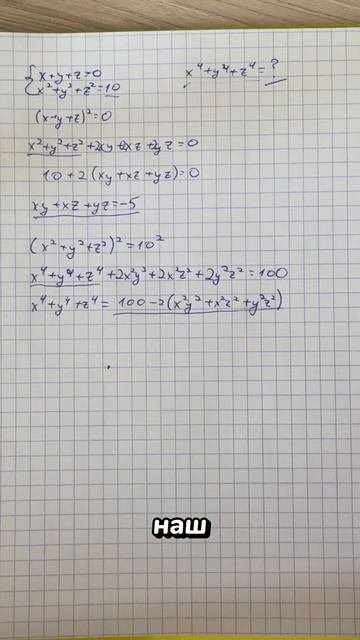 x+y+z=0
x²+y²+z²=10
x⁴+y⁴+z⁴=?
(x+y+z)²=0
x²+y²+z²+2xy+2xz+2yz=0
10+2(xy+xz+yz)=0
xy+xz+yz=-5
(x²+y²+z²)²=10²
x⁴+y⁴+z⁴+2x²y²+2x²z²+2y²z²=100
x⁴+y⁴+z⁴=100-2(x²y²+x²z²+y²z²)
наш